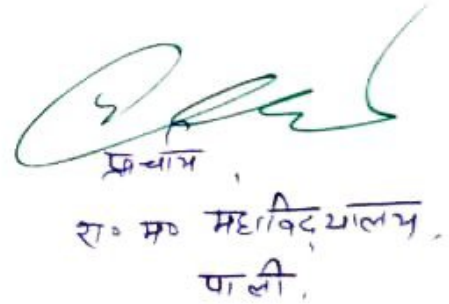 प्राचार्य,
रा० म० महाविद्यालय,
पाली.